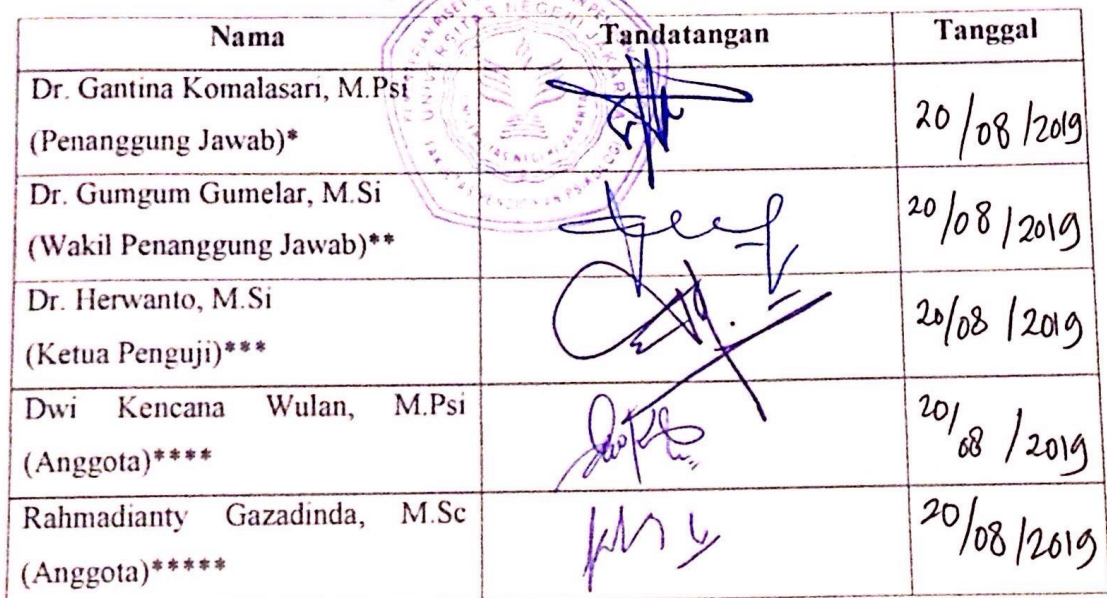 Nama Tandatangan Tanggal
Dr. Gantina Komalasari, M.Psi
(Penanggung Jawab)*
20/08/2019
Dr. Gumgum Gumelar, M.Si
(Wakil Penanggung Jawab)**
20/08/2019
Dr. Herwanto, M.Si
(Ketua Penguji)***
20/08/2019
Dwi Kencana Wulan, M.Psi
(Anggota)****
20/08/2019
Rahmadianty Gazadinda, M.Sc
(Anggota)*****
20/08/2019